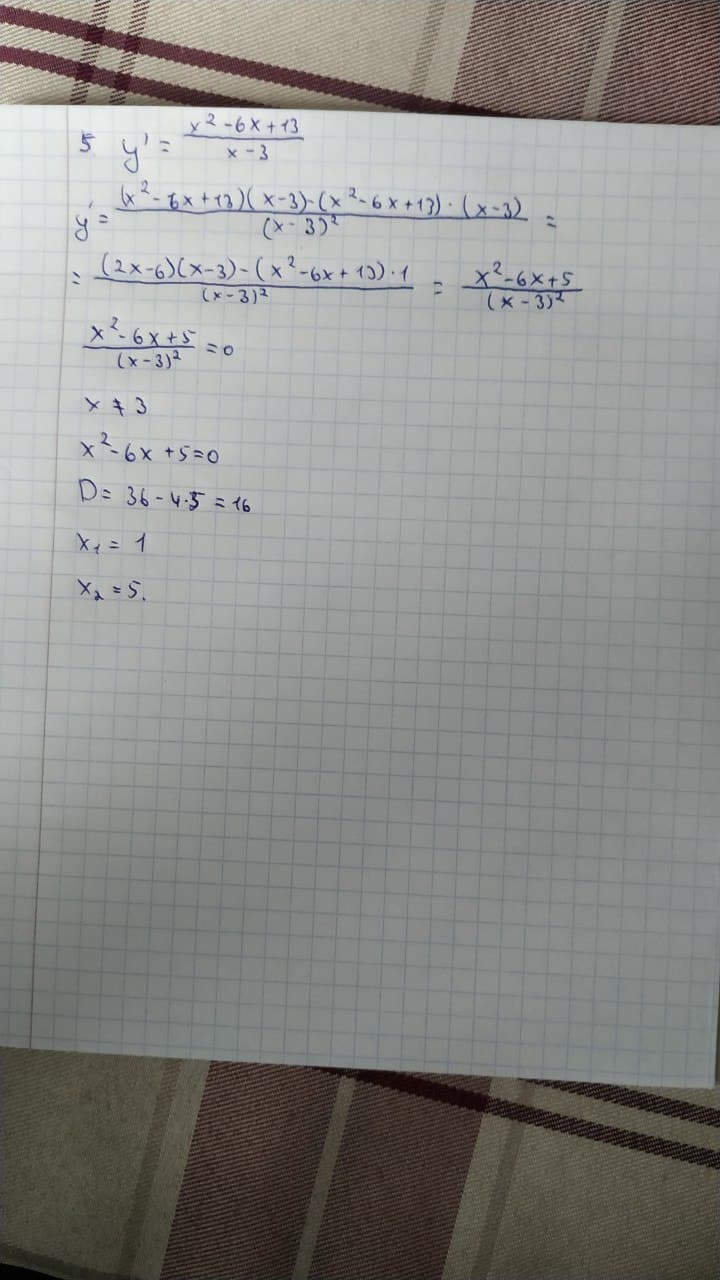 5 y' = x² - 6x + 13 / x - 3
y' = (x² - 6x + 13)(x - 3) - (x² - 6x + 13) · (x - 3) / (x - 3)² =
= (2x - 6)(x - 3) - (x² - 6x + 13) · 1 / (x - 3)² = x² - 6x + 5 / (x - 3)²
x² - 6x + 5 / (x - 3)² = 0
x ≠ 3
x² - 6x + 5 = 0
D = 36 - 4·5 = 16
x₁ = 1
x₂ = 5.